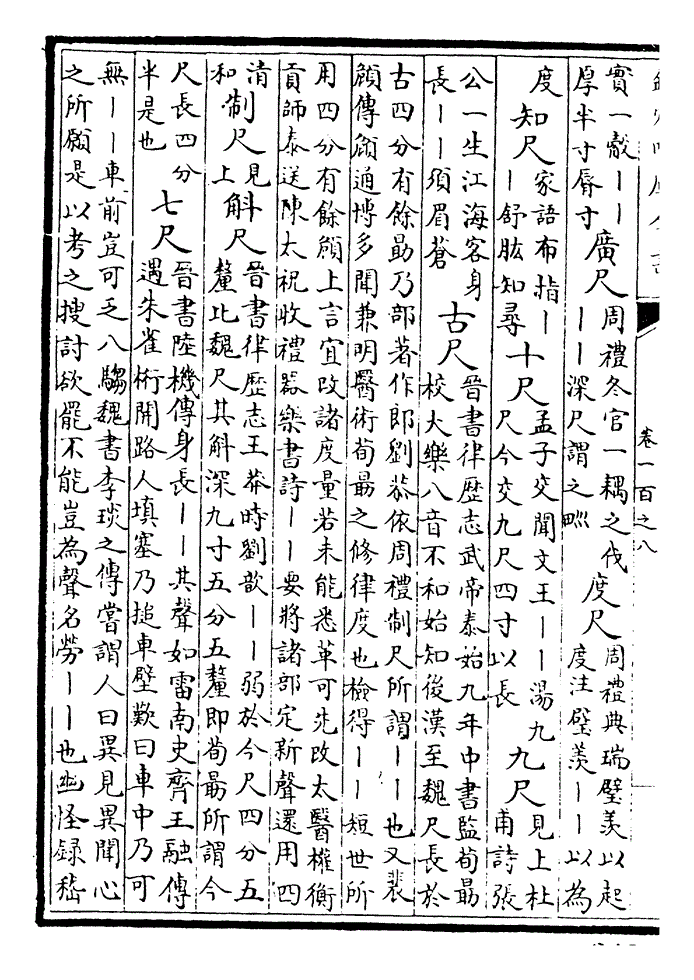 卷一百之八
實一觳丨丨
厚半寸脣寸
廣尺
周禮冬官一耦之伐
丨丨深尺謂之𤰕
度尺
周禮典瑞璧羡以起
度注璧羡丨丨以為
度
知尺
家語布指丨
丨舒肱知尋
十尺
孟子交聞文王丨丨湯九
尺今交九尺四寸以長
九尺
見上杜
甫詩張
公一生江海客身
長丨丨須眉蒼
古尺
晉書律歷志武帝泰始九年中書監荀勗
校大樂八音不和始知後漢至魏尺長於
古四分有餘勗乃部著作郎劉恭依周禮制尺所謂丨丨也又裴
頠傳頠通博多聞兼明醫術荀勗之修律度也檢得丨丨短世所
用四分有餘頠上言宜改諸度量若未能悉革可先改太醫權衡
貢師泰送陳太祝收禮器樂書詩丨丨要將諸部定新聲還用四
清
和
制尺
見
上
斛尺
晉書律歷志王莽時劉歆丨丨弱於今尺四分五
釐比魏尺其斛深九寸五分五釐即荀勗所謂今
尺長四分
半是也
七尺
晉書陸機傳身長丨丨其聲如雷南史齊王融傳
遇朱雀桁開路人填塞乃搥車壁歎曰車中乃可
無丨丨車前豈可乏八騶魏書李琰之傳嘗謂人曰異見異聞心
之所願是以考之搜討欲罷不能豈為聲名勞丨丨也幽怪録嵇